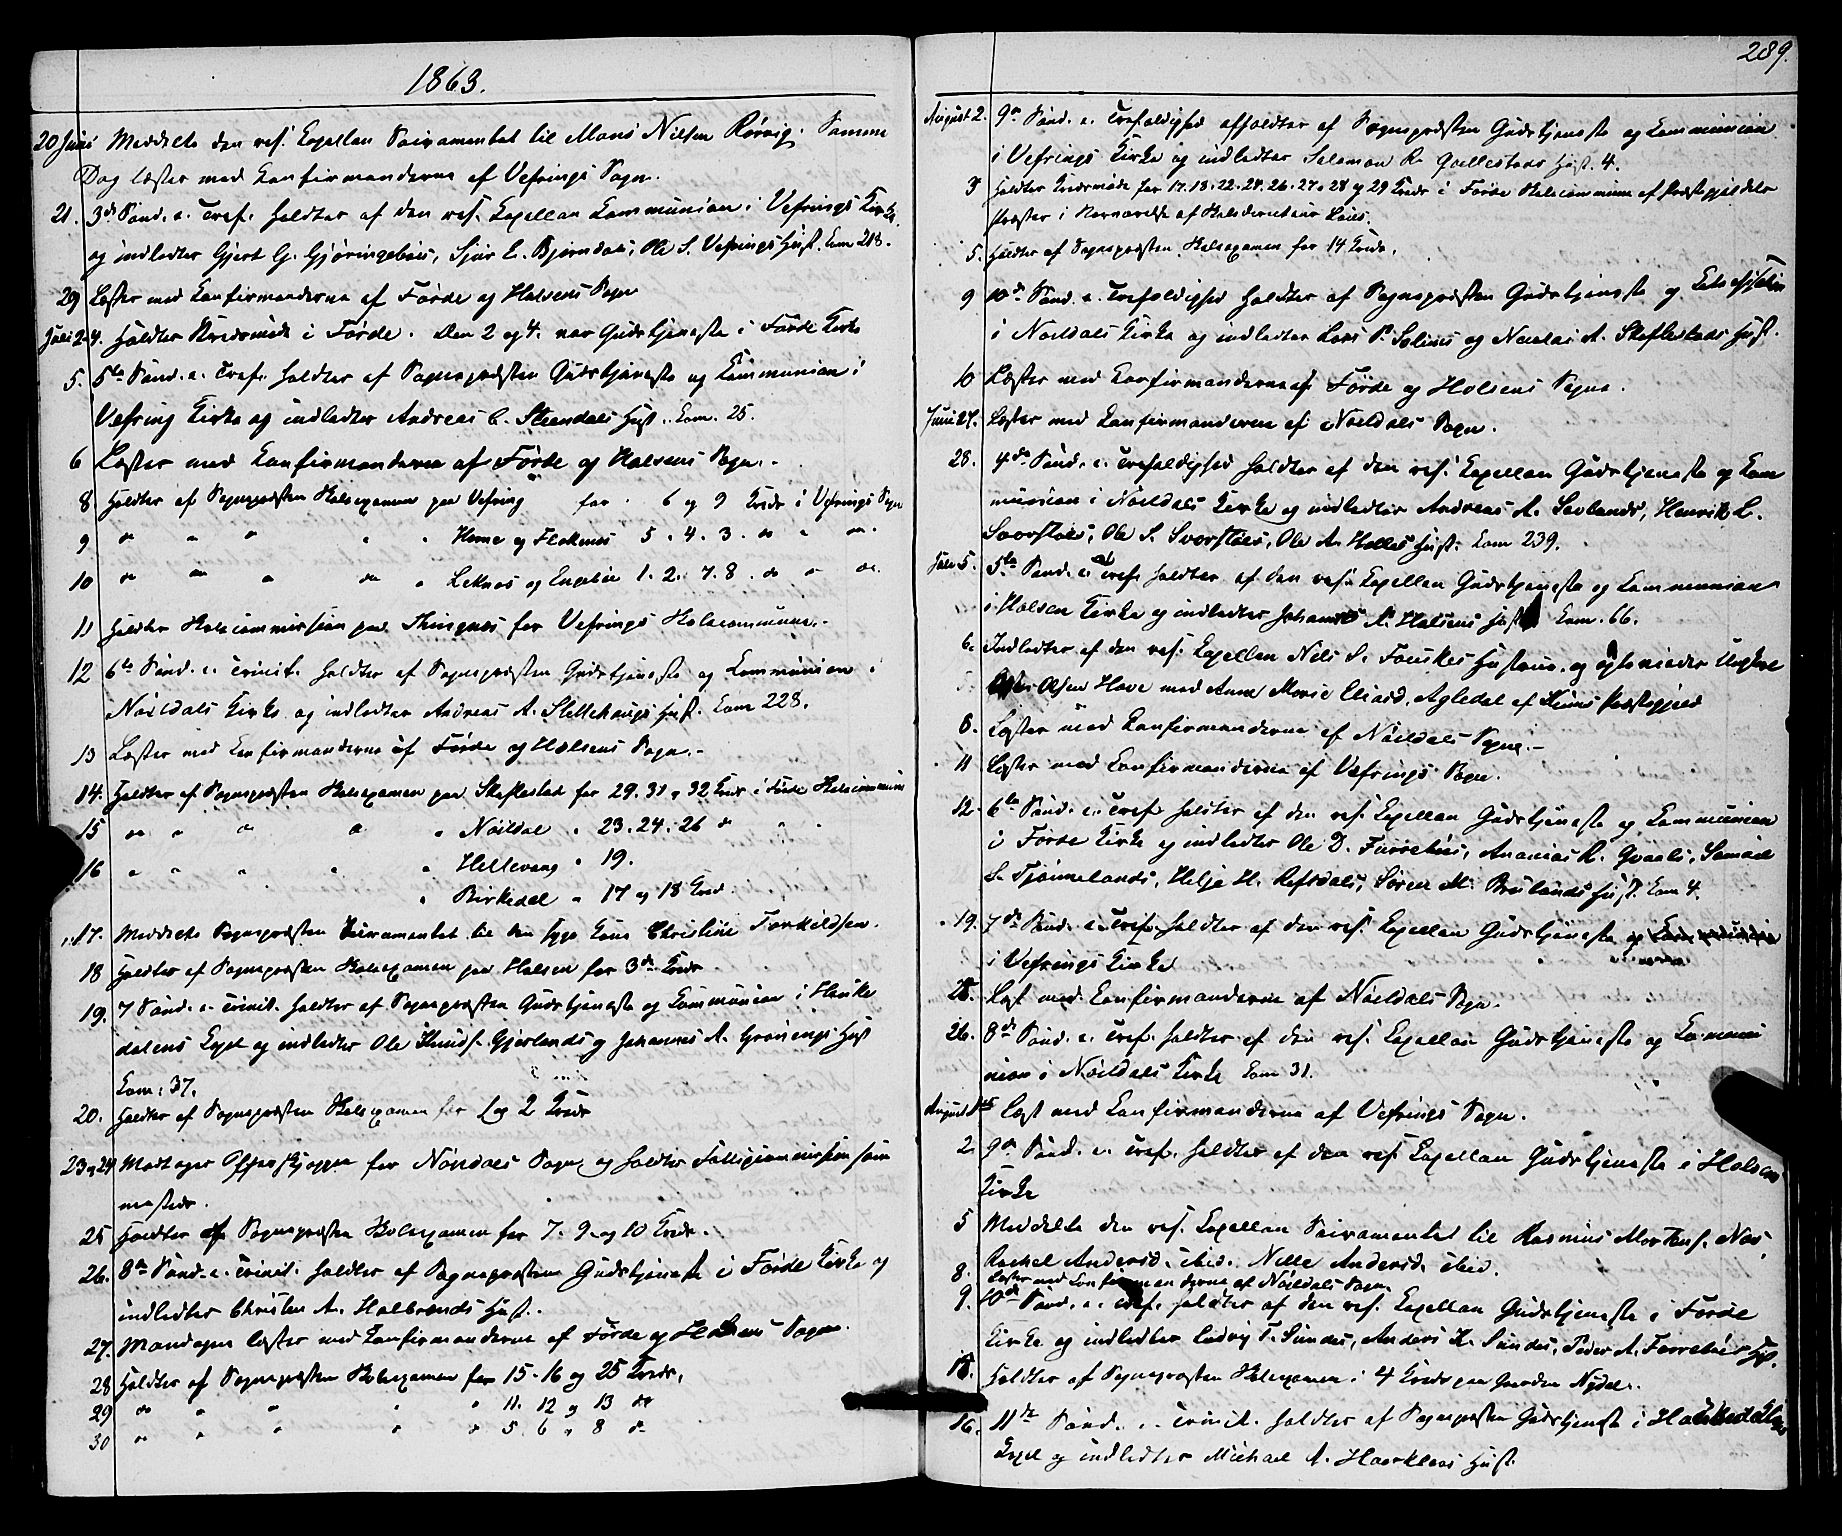 1863.
20 Juni Meddelte den res. Capellan Sacramentet til Mons Nilsen Rørvig. Samme
Dag læster med Confirmanderne af Vefrings Sogn.
21. 3de Sønd. e. Tref. holdtes af den res. Capellan Communion i Vefrings Kirke
og indledtes Gjert G. Gjøringebøes, Sjur E. Bjørndals, Ole S. Vefrings Hust. Com 218.
29 Læster med Confirmanderne af Førde og Holsens Sogn
Juli 2-4. Holdtes Kredsmøde i Førde. Den 2 og 4. var Gudstjeneste i Førde Kirke
5. 5te Sønd. e. Tref. holdtes af Sognepræsten Gudstjeneste og Communion i
Vefring Kirke og indledtes Andreas C. Steendals Hust. Com. 25.
6 Læster med Confirmanderne af Førde og Holsens Sogn.
8 Holdtes af Sognepræsten Skoleexamen paa Vefring for 6 og 9 Kreds i Vefrings Sogn
9 do " " " " Horne og Flokenes 5. 4. 3. do " do.
10 do do " do " Leknes og Engebøe 1. 2. 7. 8. do " do.
11 Holdtes Skolecommission paa Thingnæs for Vefrings Skolecommune.
12 6te Sønd. e. Trinit. holdtes af Sognepræsten Gudstjeneste og Communion i
Nøildals Kirke og indledtes Andreas A. Stellehaugs Hust. Com 228.
13 Læster med Confirmanderne af Førde og Holsens Sogn.
14. Holdtes af Sognepræsten Skoleexamen paa Skeflestad for 29. 31 og 32 Kreds i Førde Skolecommune
15 do " " " " Nøildal " 23. 24. 26 do " "
16 " " " " " Hellevang " 19.
" Birkedal " 17 og 18 Kreds.
17. Meddelte Sognepræsten Sacramentet til den syge Kone Christine Torkildsen.
18 Holdtes af Sognepræsten Skoleexamen paa Holsen for 3de Kreds
19. 7 Sønd. e. Trinit. holdtes af Sognepræsten Gudstjeneste og Communion i Houke
dalens Capel og indledtes Ole Knuds. Gjerlands og Johannes A. Grønengs Hust
Com: 37.
20. Holdtes af Sognepræsten Skoleexamen for 1 og 2 Kreds
23 og 24 Modtoges for Nøildals Sogn og holdtes Fattigcommission sam
mesteds.
25 Holdtes af Sognepræsten Skoleexamen for 7. 9. og 10 Kreds.
26. 8de Sønd. e. Trinit. holdtes af Sognepræsten Gudstjeneste i Førde Kirke og
indledtes Christen A. Halbrends Hust.
27. Mandagen læster med Confirmanderne af Førde og Holsens Sogne.
28 Holdtes af Sognepræsten Skoleexamen for 15. 16 og 25 Kreds.
29 do " " " " 11. 12 og 13 do
30 " " " " " 5. 6 " 8 do
289.
August 2. 9de Sønd. e. Trefoldighed afholdtes af Sognepræsten Gudstjeneste og Communion
i Vefrings Kirke og indledtes Salamon R. Hust. 4.
3 Holdtes Kredsmøde for 17. 18. 22. 24. 26. 27. 28 og 29 Kreds i Førde Skolecommune af Præstegjeldets
Præster i Nærværelse af Skoledirecteur
5. Holdtes af Sognepræsten Skoleexamen for 14 Kreds.
9 10de Sønd. e. Trefoldighed holdtes af Sognepræsten Gudstjeneste og
i Nøildals Kirke og indledtes Lars P. Solems og Nicolai A. Skeflestads Hust.
10 Læster med Confirmanderne af Førde og Holsens Sogne.
Juni 27. Læster med Confirmanderne af Nøildals Sogn.
28. 4de Sønd. e. Trefoldighed holdtes af den res. Capellan Gudstjeneste og Com
munion i Nøildals Kirke og indledtes Andreas A. Savlands, Henrik L.
Svorstøes, Ole S. Svorstøes, Ole A. Holles Hust. Com 239.
Juli 5. 5te Sønd. e. Tref. holdtes af den res. Capellan Gudstjeneste og Communion
i Holsen Kirke og indledtes Johannes A. Holsens Hust Com. 66.
6. Indledtes af den res. Capellan Nils S. Fauskes Hustrue og Ungkarl
Olsen Hove med Anne Marie Eliasd. Agledal af Kinns Præstegjeld
8. Læster med Confirmanderne af Nøildals Sogne.
11 Læster med Confirmanderne af Vefrings Sogn.
12. 6te Sønd. e. Tref. holdtes af den res. Capellan Gudstjeneste og Communion
i Førde Kirke og indledtes Ole D. Farsebøes, Ananias R. Qvaals, Samuel
S. Tjømelands, Helje H. Refsdals, Søren M. Brulands Hust. Com 4.
19. 7de Sønd. e. Tref. holdtes af den res. Capellan Gudstjeneste og Communion
i Vefrings Kirke
25. Læst med Confirmanderne af Nøildals Sogn.
26. 8de Sønd. e. Tref. holdtes af den res. Capellan Gudstjeneste og Commu
nion i Nøildals Kirke Com 31.
August 1ste Læst med Confirmanderne af Vefrings Sogn.
2. 9de Sønd. e. Tref. holdtes af den res. Capellan Gudstjeneste i Holsen
Kirke
5 Meddelte den res. Capellan Sacramentet til Rasmus Mortens. Næs,
Rachel Andersd. ibid. Nille Andersd. ibid.
8. Læster med Confirmanderne af Nøildals Sogn
9. 10de Sønd. e. Tref. holdtes af den res. Capellan Gudstjeneste i Førde
Kirke og indledtes Ludvig T. Sundes, Anders K. Sundes, Peder A. Farsebøes Hust.
15. Holdtes af Sognepræsten Skoleexamen i 4 Kreds paa Gaarden Nydal.
16. 11te Sønd. e. Trinit. holdtes af Sognepræsten Gudstjeneste i Houkedalens
Capel og indledtes Michael A. Hoarkleos Hust.